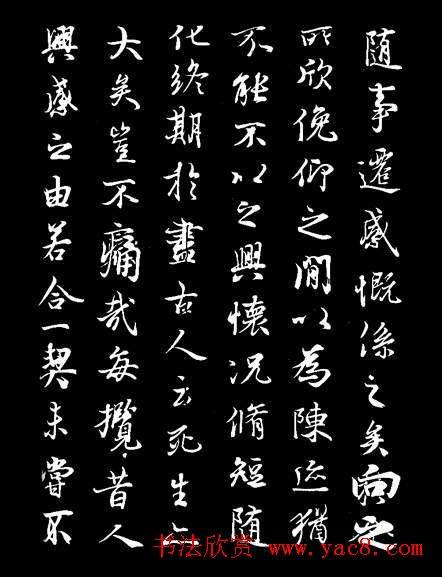 随事遷感慨係之矣向之
所欣俛仰之間以為陳迹猶
不能不以之興懷況脩短随
化終期於盡古人云死生亦
大矣豈不痛哉每攬昔人
興感之由若合一契未嘗不
书法欣赏 www.yac8.com